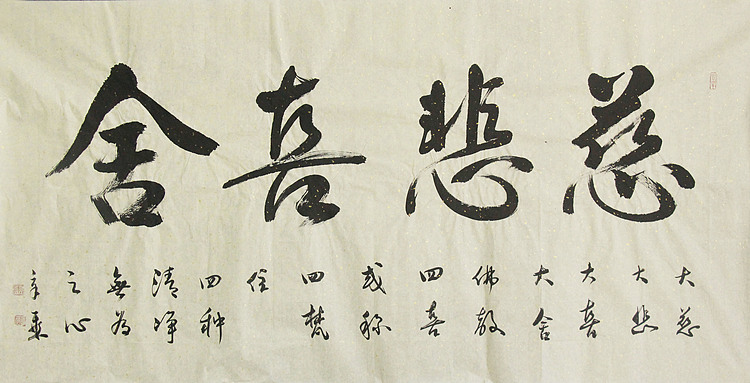 慈悲喜舍
大慈
大悲
大喜
大舍
佛教
四喜
或称
四梵
住
四种
清净
無為
之心